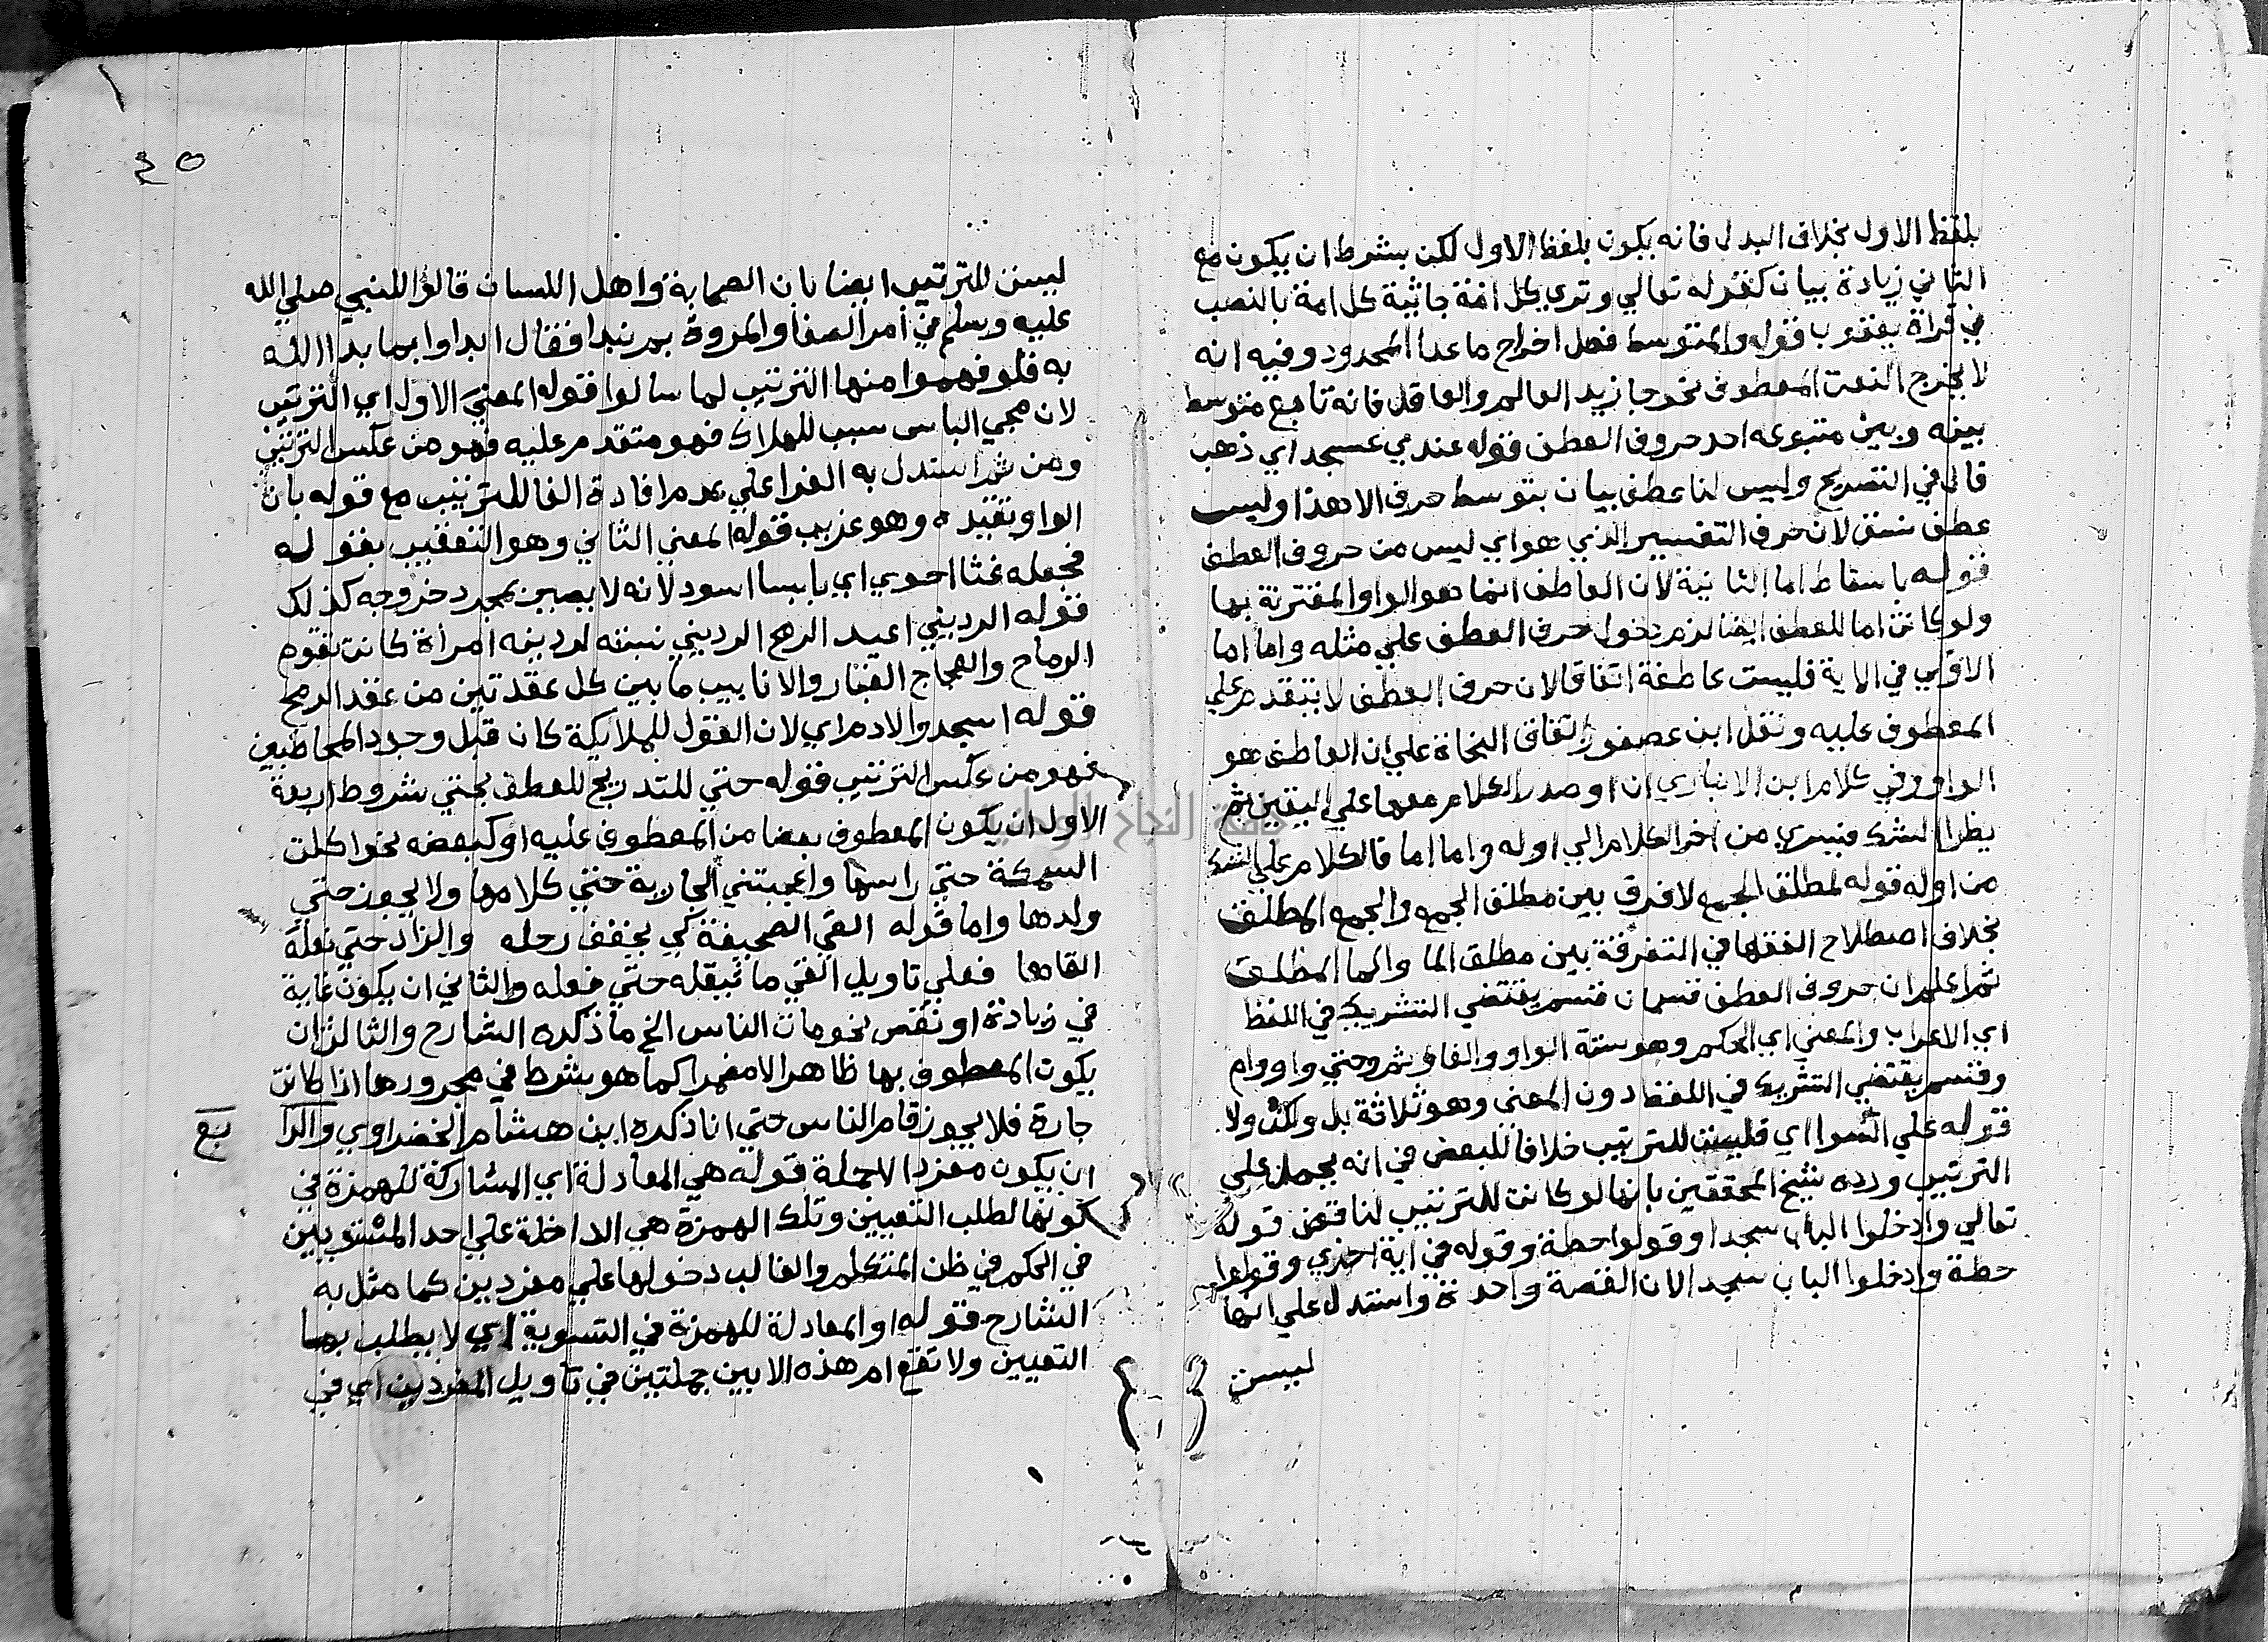 بلفظ الاول بخلاف البدل فانه يكون بلفظ الاول لكن بشرط ان يكون مع
الثاني زيادة بيان كقوله تعالي وتري كل امة جاثية كل امة بالنصب
في قراة يعقوب قوله والمتوسط فصل اخراج ما عدا المحدود وفيه انه
لا يخرج النعت المعطوف نحو جا زيد العالم والعاقل فانه تابع متوسط
بينه وبين متبوعه احد حروف العطف قوله عندي عسجد اي ذهب
قال في التصريح وليس لنا عطف بيان بتوسط حرف الا هذا وليس
عطف نسق لان حرف التفسير الذي هو اي ليس من حروف العطف
قوله باسقاط اما الثانية لان العاطف انما هو الواو المقترنة بها
ولو كانت اما للعطف ايضا لزم دخول حرف العطف علي مثله واما اما
الاولي في الاية فليست عاطفة اتفاقا لان حرف العطف لا يتقدم علي
المعطوف عليه ونقل ابن عصفور اتفاق النحاة علي ان العاطف هو
الواو وفي كلام ابن الانباري ان او صدر الكلام معها علي اليقين ثم
يطرا الشك فيسري من اخر الكلام الي اوله واما اما فالكلام علي الشك
من اوله قوله لمطلق الجمع لا فرق بين مطلق الجمع والجمع المطلق
بخلاف اصطلاح الفقها في التفرقة بين مطلق الما والما المطلق
ثم اعلم ان حروف العطف قسمان قسم يقتضي التشريك في اللفظ
اي الاعراب والمعني اي الحكم وهو ستة الواو والفا وثم وحتي واو وام
وقسم يقتضي التشريك في اللفظ دون المعني وهو ثلاثة بل ولكن ولا
قوله علي السوا اي فليست للترتيب خلافا للبعض في انه يحمل علي
الترتيب ورده شيخ المحققين بانها لو كانت للترتيب لناقض قوله
تعالي وادخلوا الباب سجدا وقولوا حطة وقوله في اية اخري وقولوا
حطة وادخلوا الباب سجدا لان القصة واحدة واستدل علي انها
ليست
٤٥
ليست للترتيب ايضا بان الصحابة واهل اللسان قالوا للنبي صلي الله
عليه وسلم في امر الصفا والمروة بم نبدا فقال ابداوا بما بدا الله
به فلو فهموا منها الترتيب لما سالوا قوله المعني الاول اي الترتيب
لان مجي الباس سبب للهلاك فهو متقدم عليه فهو من عكس الترتيب
ومن ثم استدل به الفرا علي عدم افادة الفا للترتيب مع قوله بان
الواو تفيده وهو غريب قوله المعني الثاني وهو التعقيب بقوله
فجعله غثا احوي اي يابسا اسود لانه لا يصير بمجرد خروجه كذلك
قوله الرديني اعيد الرمح الرديني نسبته لردينه امراة كانت تقوم
الرماح والعجاج الغبار والانابيب ما بين كل عقدتين من عقد الرمح
قوله اسجدوا لادم اي لان القول للملايكة كان قبل وجود المخاطبين
فهو من عكس الترتيب قوله حتي للتدريج للعطف بحتي شروط اربعة
الاول ان يكون المعطوف بعضا من المعطوف عليه او كبعضه نحو اكلت
السمكة حتي راسها واعجبتني الجارية حتي كلامها ولا يجوز حتي
ولدها واما قوله القي الصحيفة كي يخفف رحله والزاد حتي نعله
القاها فعلي تاويل القي ما يثقله حتي نعله والثاني ان يكون غاية
في زيادة او نقص نحو مات الناس الخ ما ذكره الشارح والثالث ان
يكون المعطوف بها ظاهرا لا مضمرا كما هو شرط في مجرورها اذا كانت
جارة فلا يجوز قام الناس حتي انا ذكره ابن هشام الخضراوي والرا بع
ان يكون مفردا لا جملة قوله هي المعادلة اي المشاركة للهمزة في
كونها لطلب التعيين وتلك الهمزة هي الداخلة علي احد المستويين
في الحكم في ظن المتكلم والغالب دخولها علي مفردين كما مثل به
الشارح قوله او المعادلة للهمزة في التسوية اي لا يطلب بها
التعيين ولا تقع ام هذه الا بين جملتين في تاويل المفردين اي في